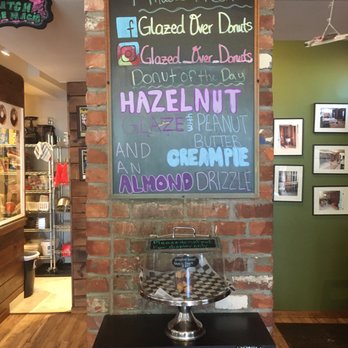 Glazed Over Donuts
Glazed_Over_Donuts
Donut of the Day
HAZELNUT
GLAZE with PEANUT
BUTTER
AND CREAMPIE
AN
ALMOND DRIZZLE